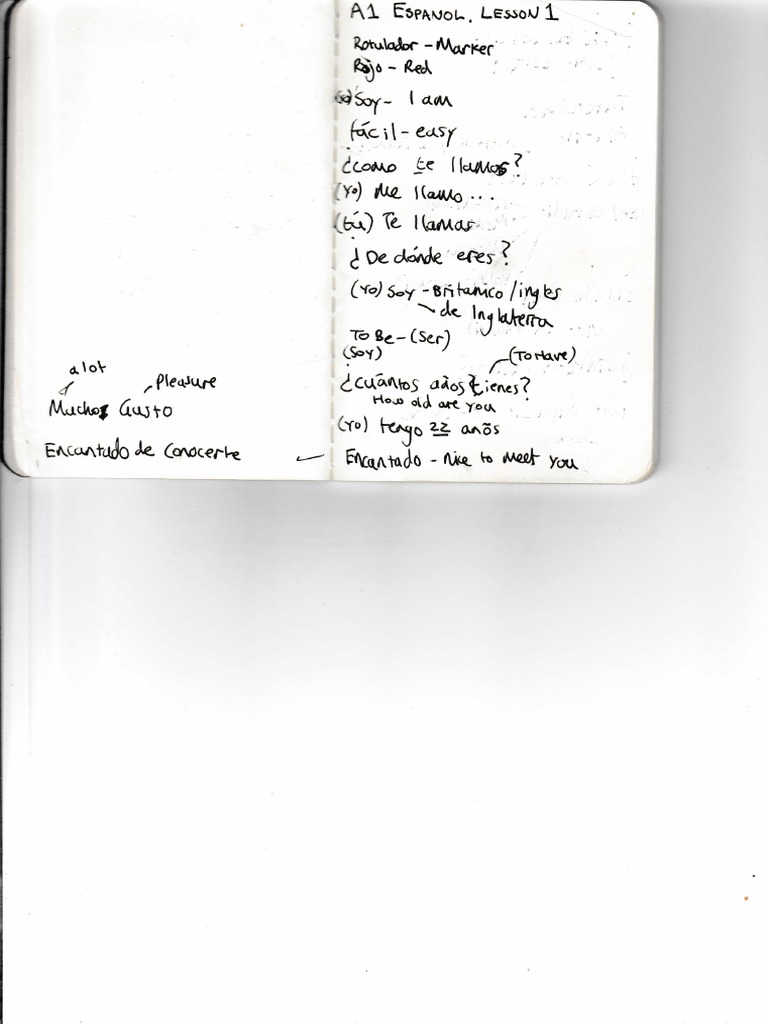 a lot
Pleasure
Mucho Gusto
Encantado de Conocerte
A1 ESPANOL, LESSON 1
Rotulador - Marker
Rojo - Red
Soy - I am
fácil - easy
¿como te llamas?
(Yo) Me llamo ...
(tú) Te llamas
¿De dónde eres?
(Yo) Soy - Britanico / ingles
de Inglaterra
To Be - (Ser)
(Soy)
(To Have)
¿cuántos años tienes?
How old are you
(Yo) tengo 22 anõs
Encantado - nice to meet you